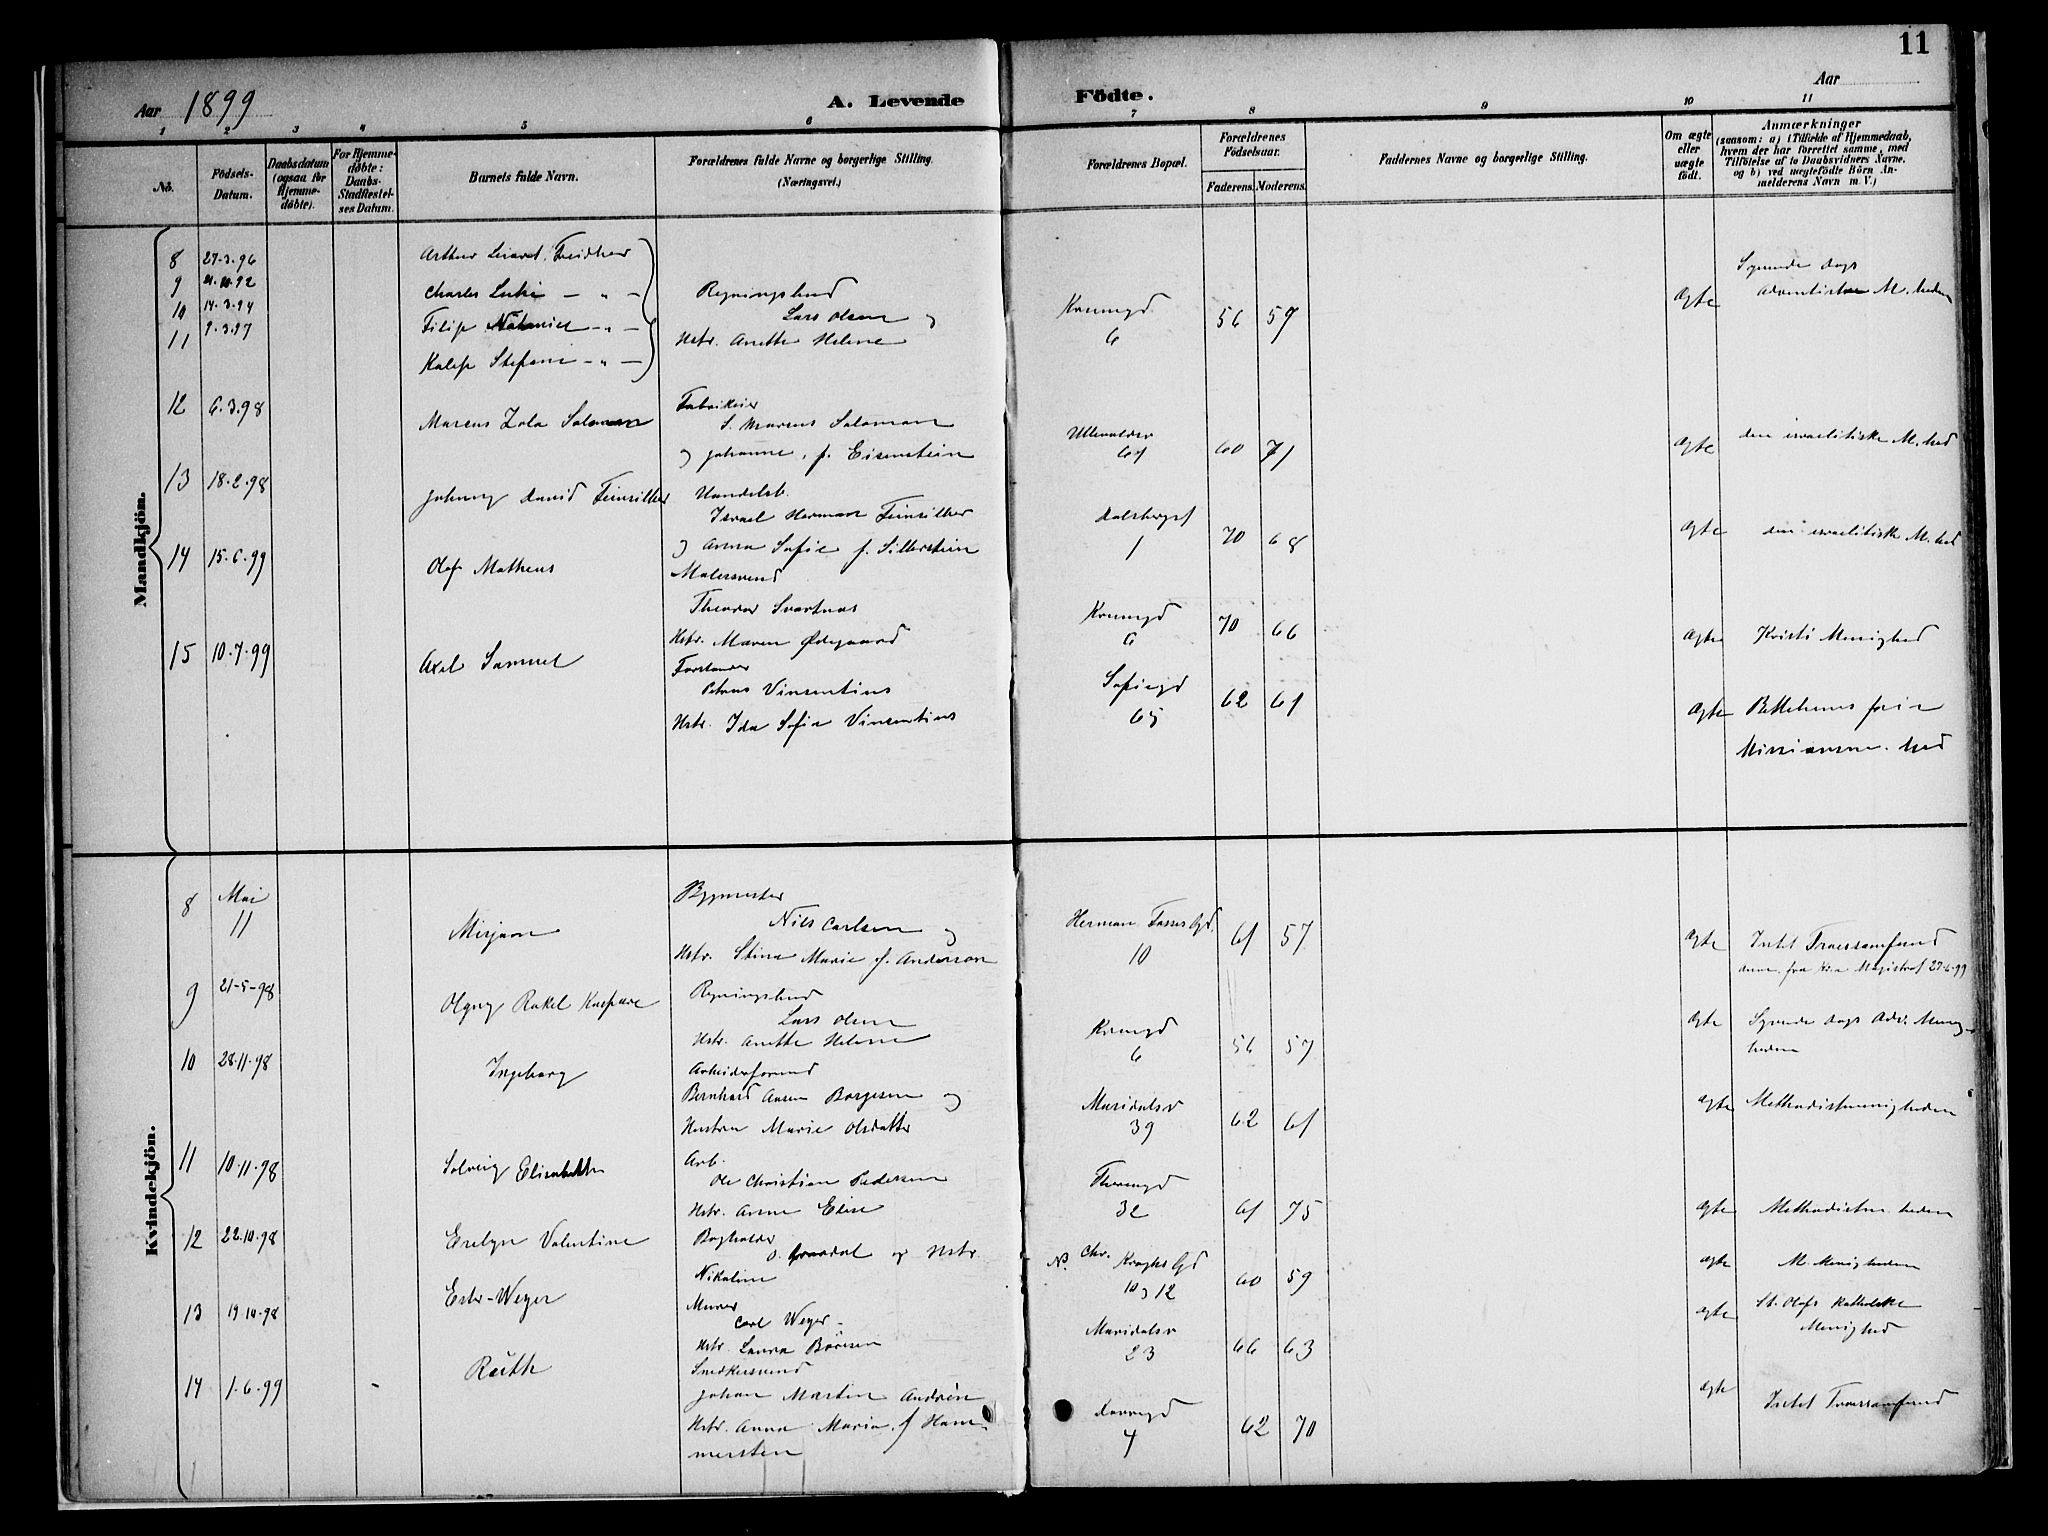 11
Aar 1899
A. Levende
Födte.
Aar
1 2 3 4 5 6 7 8 9 10 11
No.
Födsels-
Datum.
Daabsdatum
(ogsaa for
Hjemme-
døbte).
For Hjemme-
døbte:
Daabs-
Stadfestel-
ses Datum.
Barnets fulde Navn.
Forældrenes fulde Navne og borgerlige Stilling.
(Næringsvei.)
Forældrenes Bopæl.
Forældrenes
Födselsaar.
Faderens. Moderens.
Faddernes Navne og borgerlige Stilling.
Om ægte
eller
uægte
födt.
Anmærkninger
(saasom: a) i Tilfælde af Hjemmedaab,
hvem der har forrettet samme, med
Tilföielse af to Daabsvidners Navne.
og b) ved uægtefödte Börn An-
melderens Navn m. V.)
Mandkjön.
8 27-3-96 Arthur
9 Charles
10 14-3-94 Filip
11 9-3-97 Kalep Stefane
Regningsbud
Lars Olsen og
Hstr. Anette Helene
6
56 59
Ægte
Syvende dags
Adventist M.heden
12 6.3.98
Marcus Zola Salomon
Fabrikeier
S. Marcus Salomon
og Johanne, f. Eisenstein
Ullevoldsv
64
60 71
Ægte
den israelitiske M.hed
13 18.2.98
Johnny David Feinsilber
Handelsb.
Israel Herman Feinsilber
og Anna Sofie f. Silberstein
Dalsbergst
1
70 68
Ægte
den israelitiske M.hed
14 15.6.99
Olaf Matheus
Malersvend
Theodor Svartnas
Hstr. Maren Ødegaard
6
70 66
Ægte
Kristi Menighed
15 10.7.99
Axel Samuel
Forstander
Petrus Vinsentius
Hstr. Ida Sofie Vinsentius
Sofiegd
65
62 61
Ægte
Betlehems frie
Missionsm.hed
Kvindekjön.
8 Mai
11
Mirjam
Bygmester
Nils Carlsen og
Hstr. Stina Marie f. Anderson
Herman Fossesgd.
10
61 57
Ægte
Intet Troessamfund
anm. fra Kra Magistrat 27-6-99
9 21-5-98
Olgny Rakel Kaspare
Regningsbud
Lars Olsen
Hstr. Anette Helene
6
56 57
Ægte
Syvende dags Adv. Menig-
heden
10 28.11.98
Ingeborg
Arbeiderformd
Bernhard Ansen Borgesen og
Hustru Marie Olsdatter
Maridalsv
39
62 61
Ægte
Methodistmenigheden
11 10.11.98
Solveig Elisabeth
Arb.
Ole Christian Pedersen
Hstr. Anne Elise
Thorsgd
32
61 75
Ægte
Methodistm.heden
12 22.10.98
Evelyn Valentine
Bogholder
O. og Hstr.
Nikoline
N. Chr. Kroghs Gd
10 og 12
60 59
Ægte
M. Menigheden
13 19.10.98
Ester Weyer
Murer
Carl Weyer
Hstr. Laura Börresen
Maridalsv
23
66 63
Ægte
St. Olafs Katholske
Menighed
14 1.6.99
Ruth
Snedkersvend
Johan Martin Andrén
Hstr. Anna Maria f. Ham-
mersten
4
62 70
Ægte
Intet Troessamfund